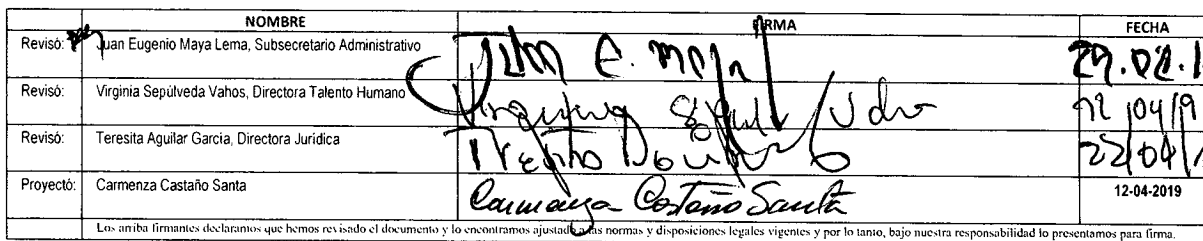 NOMBRE FIRMA FECHA
Revisó: Juan Eugenio Maya Lema, Subsecretario Administrativo Juan E. Maya
Revisó: Virginia Sepúlveda Vahos, Directora Talento Humano
Revisó: Teresita Aguilar García, Directora Jurídica 22/04/
Proyectó: Carmenza Castaño Santa Carmenza Castaño Santa 12-04-2019
Los arriba firmantes declaramos que hemos revisado el documento y lo encontramos ajustado a las normas y disposiciones legales vigentes y por lo tanto, bajo nuestra responsabilidad lo presentamos para firma.